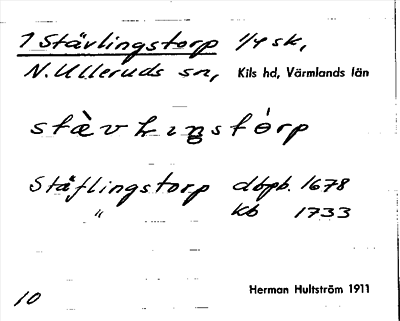 1 Stävlingstorp 1/4 sk,
N. Ulleruds sn, Kils hd, Värmlands län
Stäflingstorp dbpb. 1678
" kb 1733
10 Herman Hultström 1911